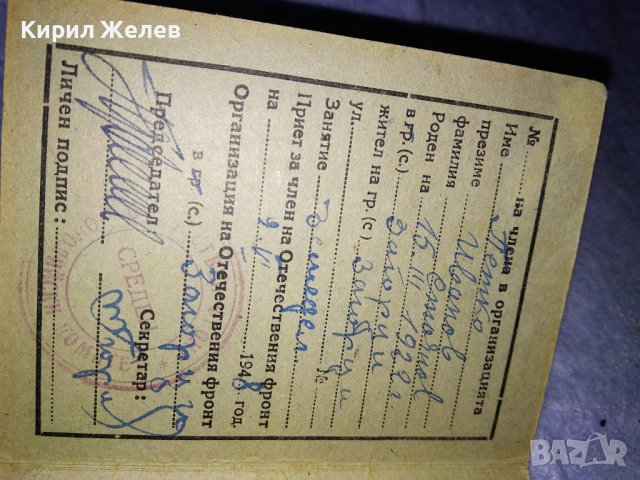 Кирил Желев
№ на члена в организацията
Име Петко
презиме Иванов
фамилия Стоянов
Роден на 15.III 1922 г
в гр. (с.) Загорци
жител на гр. (с) Загорци
ул. №
Занятие Земедел.
Приет за член на Отечествения фронт
на 9.II 1948 год.
Организация на Отечествения фронт
в гр (с.) Загорци
Председател: Секретар:
Личен подпис:
BAZAR